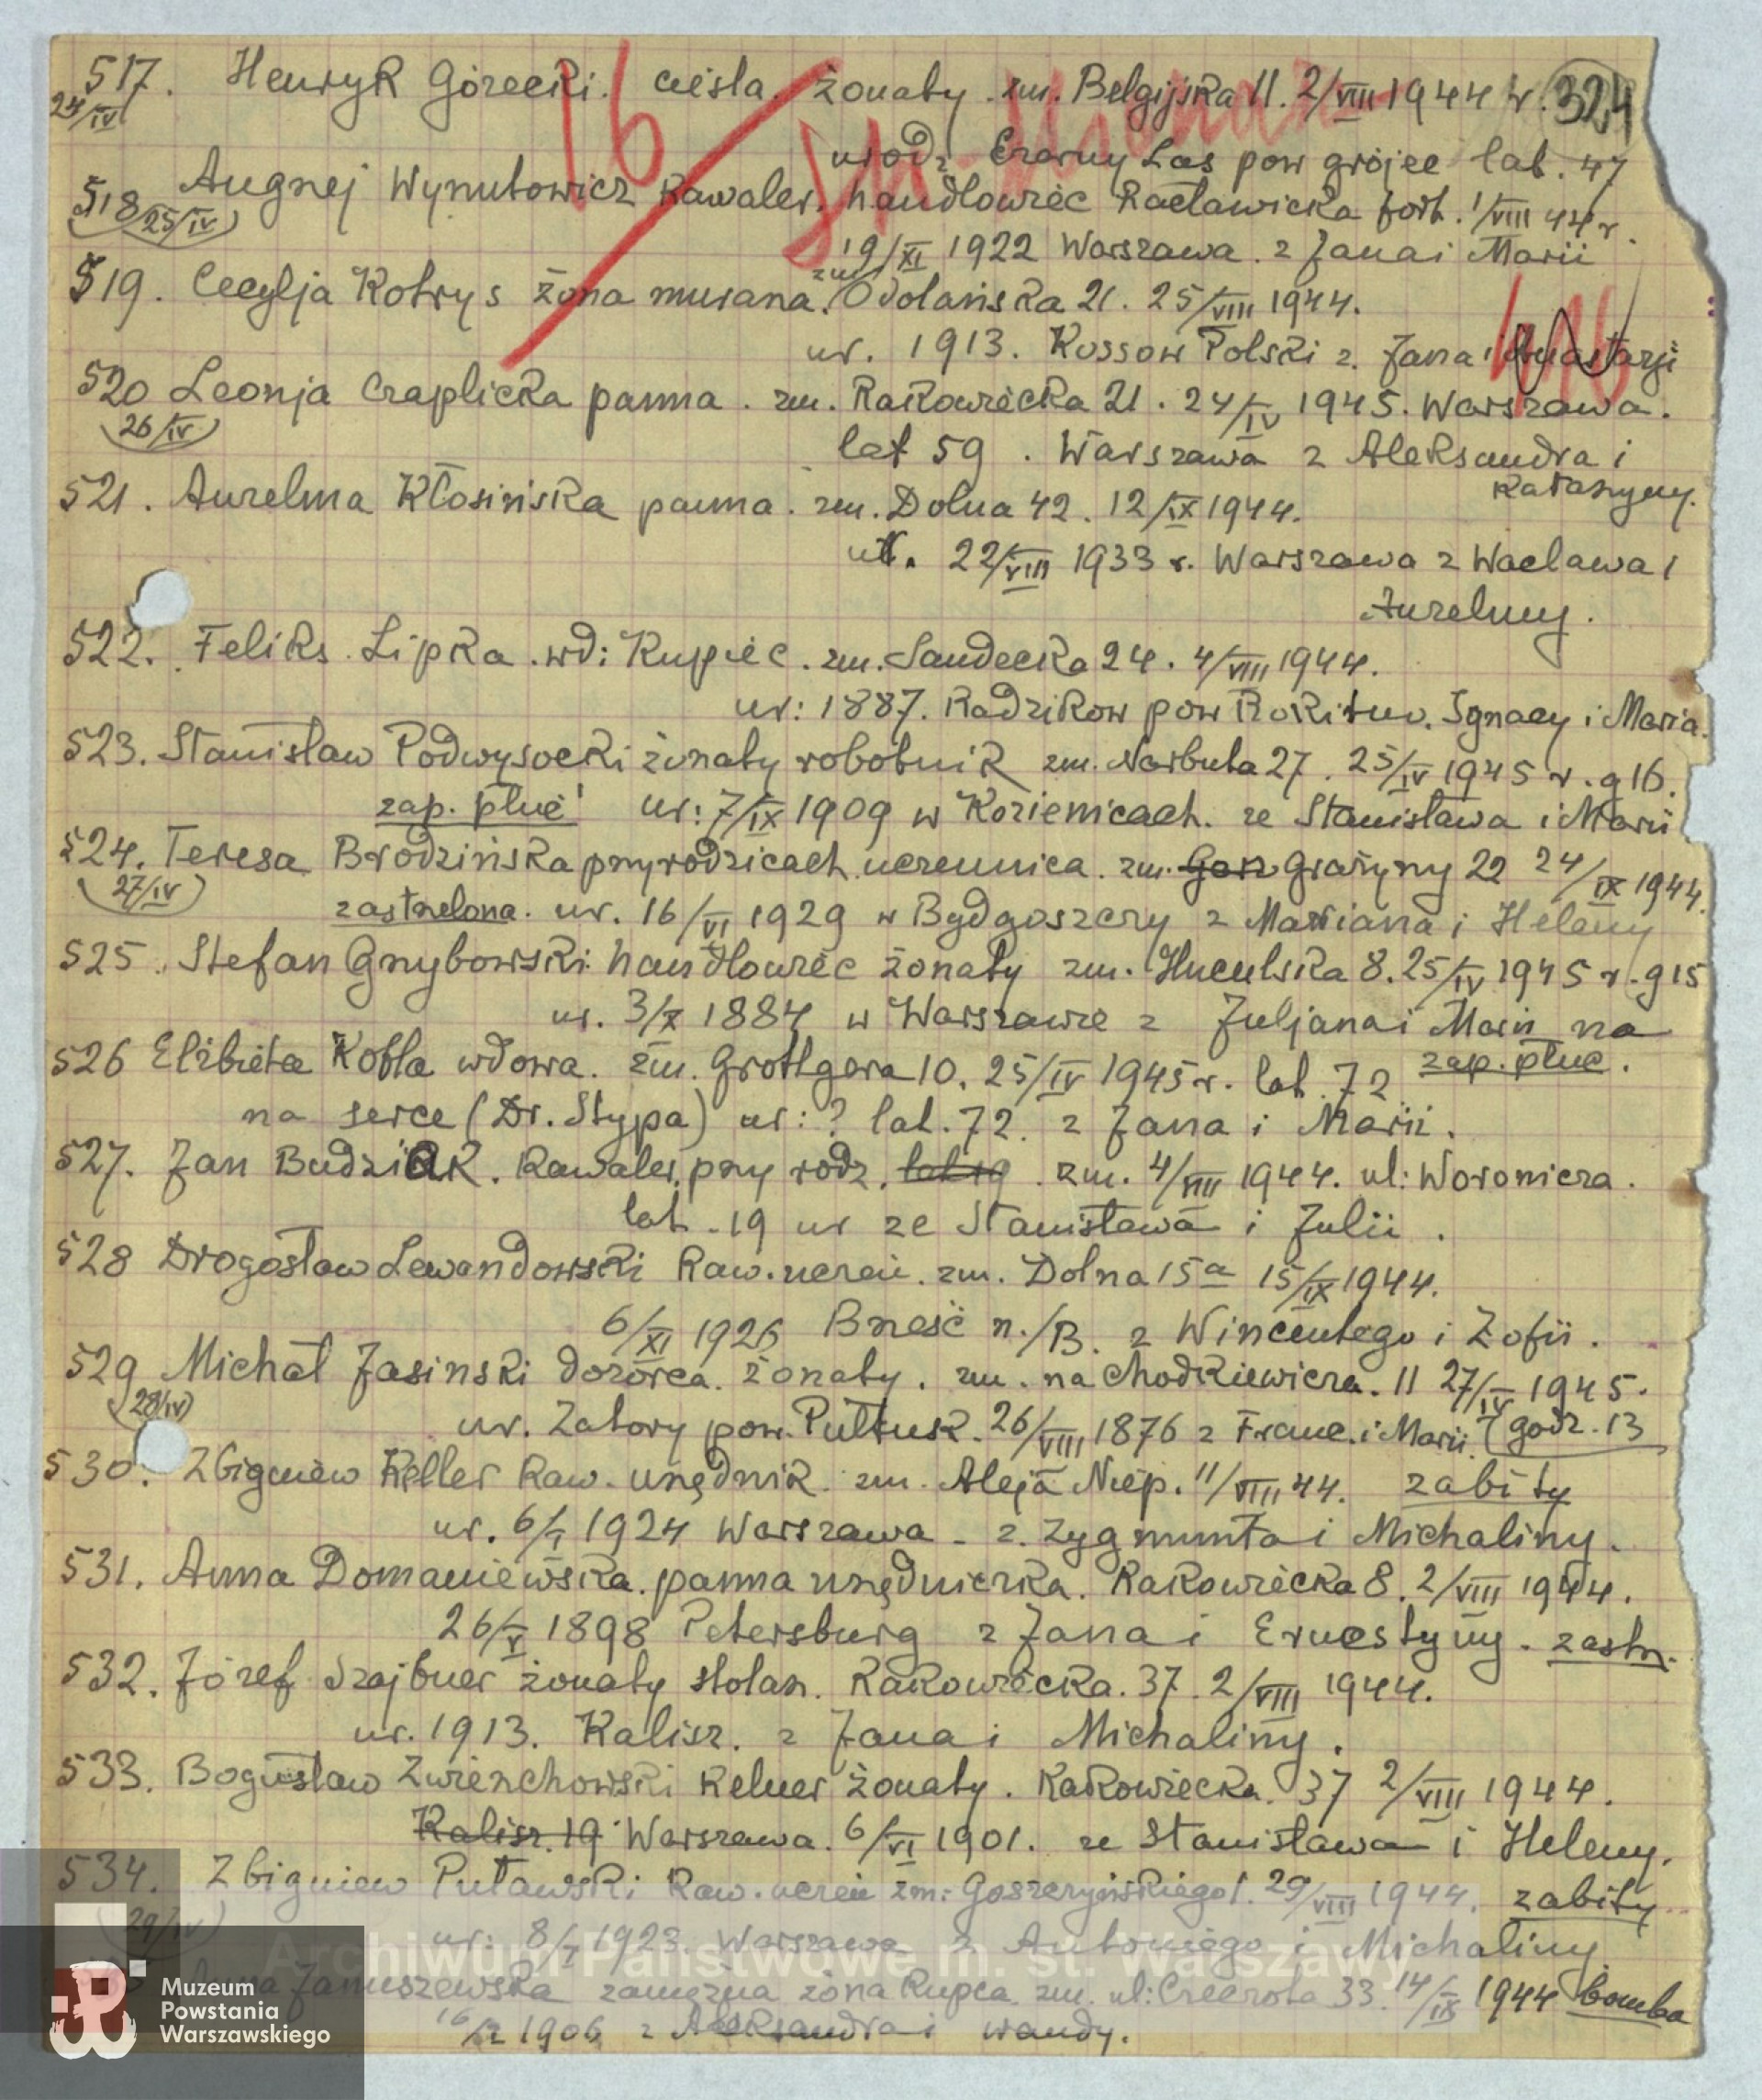 517. Henryk Górecki. cieśla. żonaty. zm. Belgijska 11. 2/VIII 1944 r. 324
24/IV
urodz Czarny Las pow grójec lat. 47
518 Augnej Wynutowicz kawaler. handlowiec Racławicka fort. 1/VIII 44 r.
25/IV
16
19/XI 1922 Warszawa. z Jana i Marii
519. Cecylja Kotrys żona murarza. zm. Odolańska 21. 25/VIII 1944.
ur. 1913. Kossow Polski z. Jana i Anastazji
520 Leonja Czaplicka panna. zm. Rakowiecka 21. 24/IV 1945. Warszawa.
26/IV
lat 59. Warszawa z Aleksandra i
Katarzyny.
521. Aurelma Kłosińska panna. zm. Dolna 42. 12/IX 1944.
ur. 22/VIII 1933 r. Warszawa z Wacława i
Aurelmy.
522. Feliks Lipka. wd: Kupiec. zm. Sandecka 24. 4/VIII 1944.
ur: 1887. Radzikow pow Rokitno. Ignacy i Maria.
523. Stanisław Podwysocki żonaty robotnik zm. Narbuta 27. 25/IV 1945 r. g 16.
zap. płuc! ur: 7/IX 1909 w Kozienicach. ze Stanisława i Marii
524. Teresa Brodzińska przy rodzicach uczennica. zm. Gosz Grażyny 22 24/IX 1944.
27/IV
zastrzelona. ur. 16/VI 1929 w Bydgoszczy z Mariana i Heleny
525. Stefan Grzybowski handlowiec żonaty zm. Huculska 8. 25/IV 1945 r. g 15
ur. 3/X 1884 w Warszawie z Juljana i Marii na
zap. płuc.
526 Elżbieta Kobla wdowa. zm. Grottgera 10. 25/IV 1945 r. lat 72
na serce (Dr. Stypa) ur: ? lat. 72. z Jana i Marii.
527. Jan Budziak. Kawaler. przy rodz. lat 19. zm. 4/VIII 1944. ul: Woronicza.
lat. 19 ur ze Stanisława i Julii.
528 Drogosław Lewandowski Kaw. uczeń. zm. Dolna 15a 15/IX 1944.
6/XI 1926 Brześć n./B. z Wincentego i Zofii.
529 Michał Jasinski dozorca. żonaty. zm. na Chodkiewicza. 11 27/IV 1945.
28/IV
ur. Zatory pow. Pułtusk. 26/VIII 1876 z Franc. i Marii. godz. 13
530. Zbigniew Keller Kaw. urzędnik. zm. Aleja Niep. 11/VIII 44. zabity
ur. 6/I 1924 Warszawa - z. Zygmunta i Michaliny.
531. Anna Domaniewska. panna urzędniczka. Rakowiecka 8. 2/VIII 1944.
26/V 1898 Petersburg z Jana i Ernestyny. zastrz.
532. Józef Szajbner żonaty stolarz. Rakowiecka. 37. 2/VIII 1944.
ur. 1913. Kalisz. z Jana i Michaliny.
533. Bogusław Zwierzchowski kelner żonaty. Rakowiecka. 37 2/VIII 1944.
Kalisz. 19 Warszawa. 6/VI 1901. ze Stanisława i Heleny.
534. Zbigniew Puławski Kaw. uczeń zm: Goszczyńskiego 1. 29/VIII 1944. zabity
29/IV
ur: 8/I 1923. Warszawa z Antoniego i Michaliny
Januszewska zamężna żona kupca zm. ul: Czeczota 33. 14/IX 1944 bomba
1906 z Aleksandra i Wandy.
Archiwum Państwowe m. st. Warszawy
Muzeum
Powstania
Warszawskiego